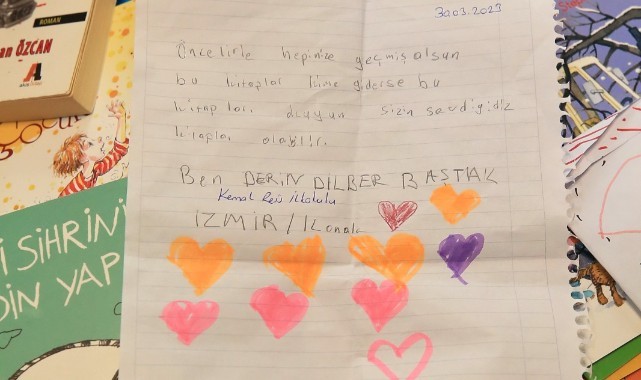 ROMAN
an ÖZCAN
30.03.2023
Öncelikle hepinize geçmiş olsun
bu kitaplar kime giderse bu
kitapları okuyun sizin sevdigidiz
kitaplar olabilir.
Ben DERİN DİLBER BAŞTAK
Kemal Reis İlkokulu
İZMİR / 
İ SİHRİNİ
DİN YAP